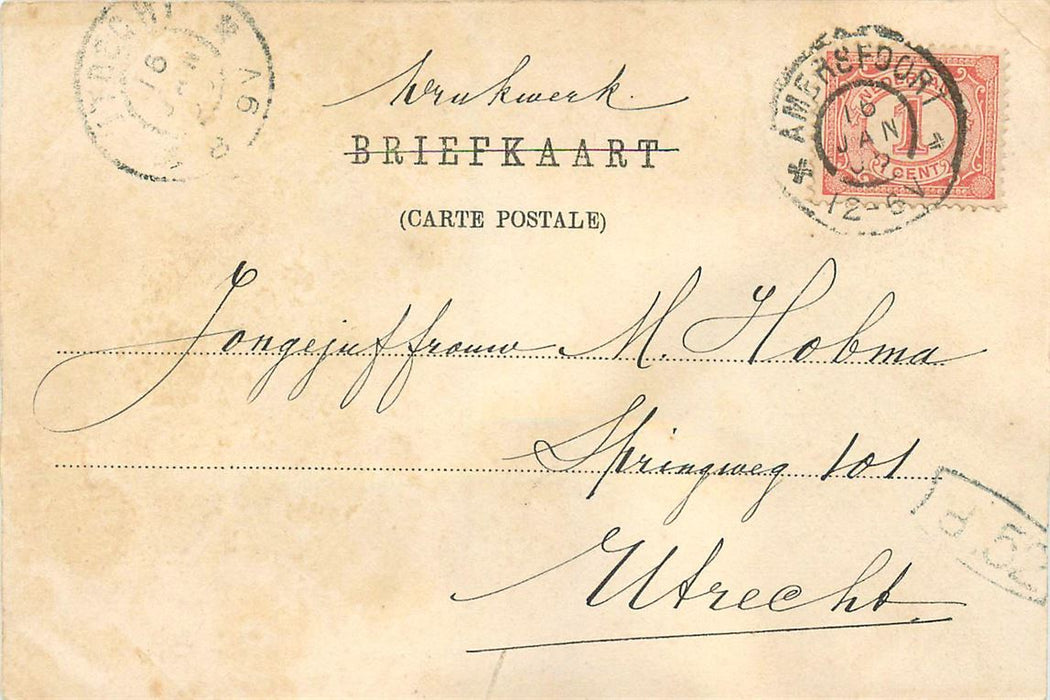 drukwerk.
BRIEFKAART
(CARTE POSTALE)
AMERSFOORT
16
JAN
12-6V
1
CENT
UTRECHT
16
JAN
Jongejuffrouw M. Hobma
Springweg 101
Utrecht.